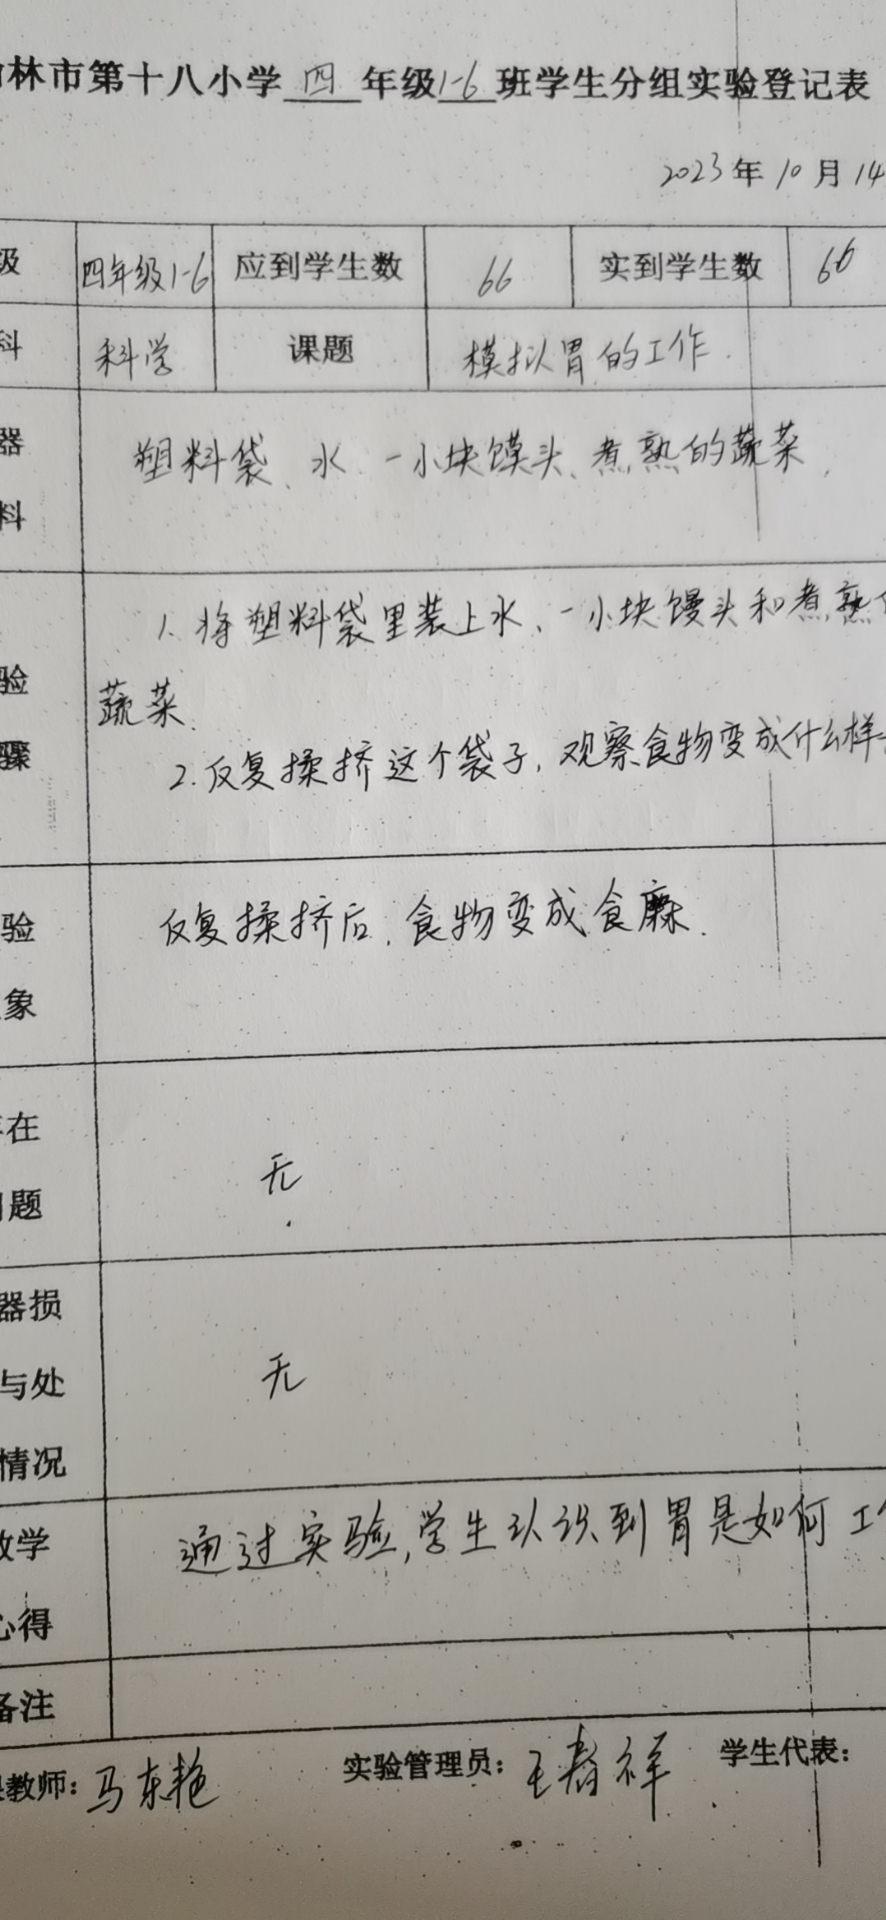 林市第十八小学 四 年级 1-6 班学生分组实验登记表
2023年10月14
级 四年级1-6 应到学生数 66 实到学生数 66
科 科学 课题 模拟胃的工作.
器 塑料袋、水、一小块馍头、煮熟的蔬菜.
料
1. 将塑料袋里装上水、一小块馒头和煮熟
验 蔬菜.
骤 2. 反复揉挤这个袋子,观察食物变成什么样
验 反复揉挤后,食物变成食糜.
象
在 无
题
器损
与处 无
情况
学 通过实验,学生认识到胃是如何工
心得
备注
教师: 马东艳 实验管理员: 王春祥 学生代表: